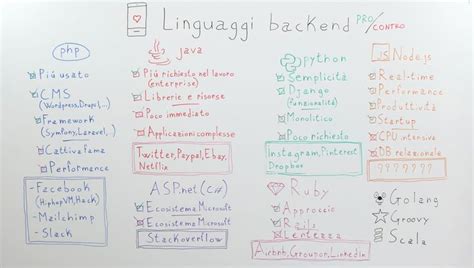 Linguaggi backend PRO/CONTRO
php
Più usato
CMS
(Wordpress, Drupal,...)
Framework
(Symfony, Laravel,..)
Cattiva fama
Performance
- Facebook
(HiphopVM, Hack)
- Mailchimp
- Slack
java
Più richiesto nel lavoro
(enterprise)
Librerie e risorse
Poco immediato
Applicazioni complesse
Twitter, Paypal, Ebay,
Netflix
ASP.net (C#)
Ecosistema Microsoft
Ecosistema Microsoft
Stackoverflow
python
Semplicità
Django
(funzionalità)
Monolitico
Poco richiesto
Instagram, Pinterest
Dropbox
Ruby
Approccio
Rails
Lentezza
Airbnb, Groupon, Linkedin
JS Node.js
Real-time
Performance
Produttività
Startup
CPU intensive
DB relazionale
???????
Golang
Groovy
Scala